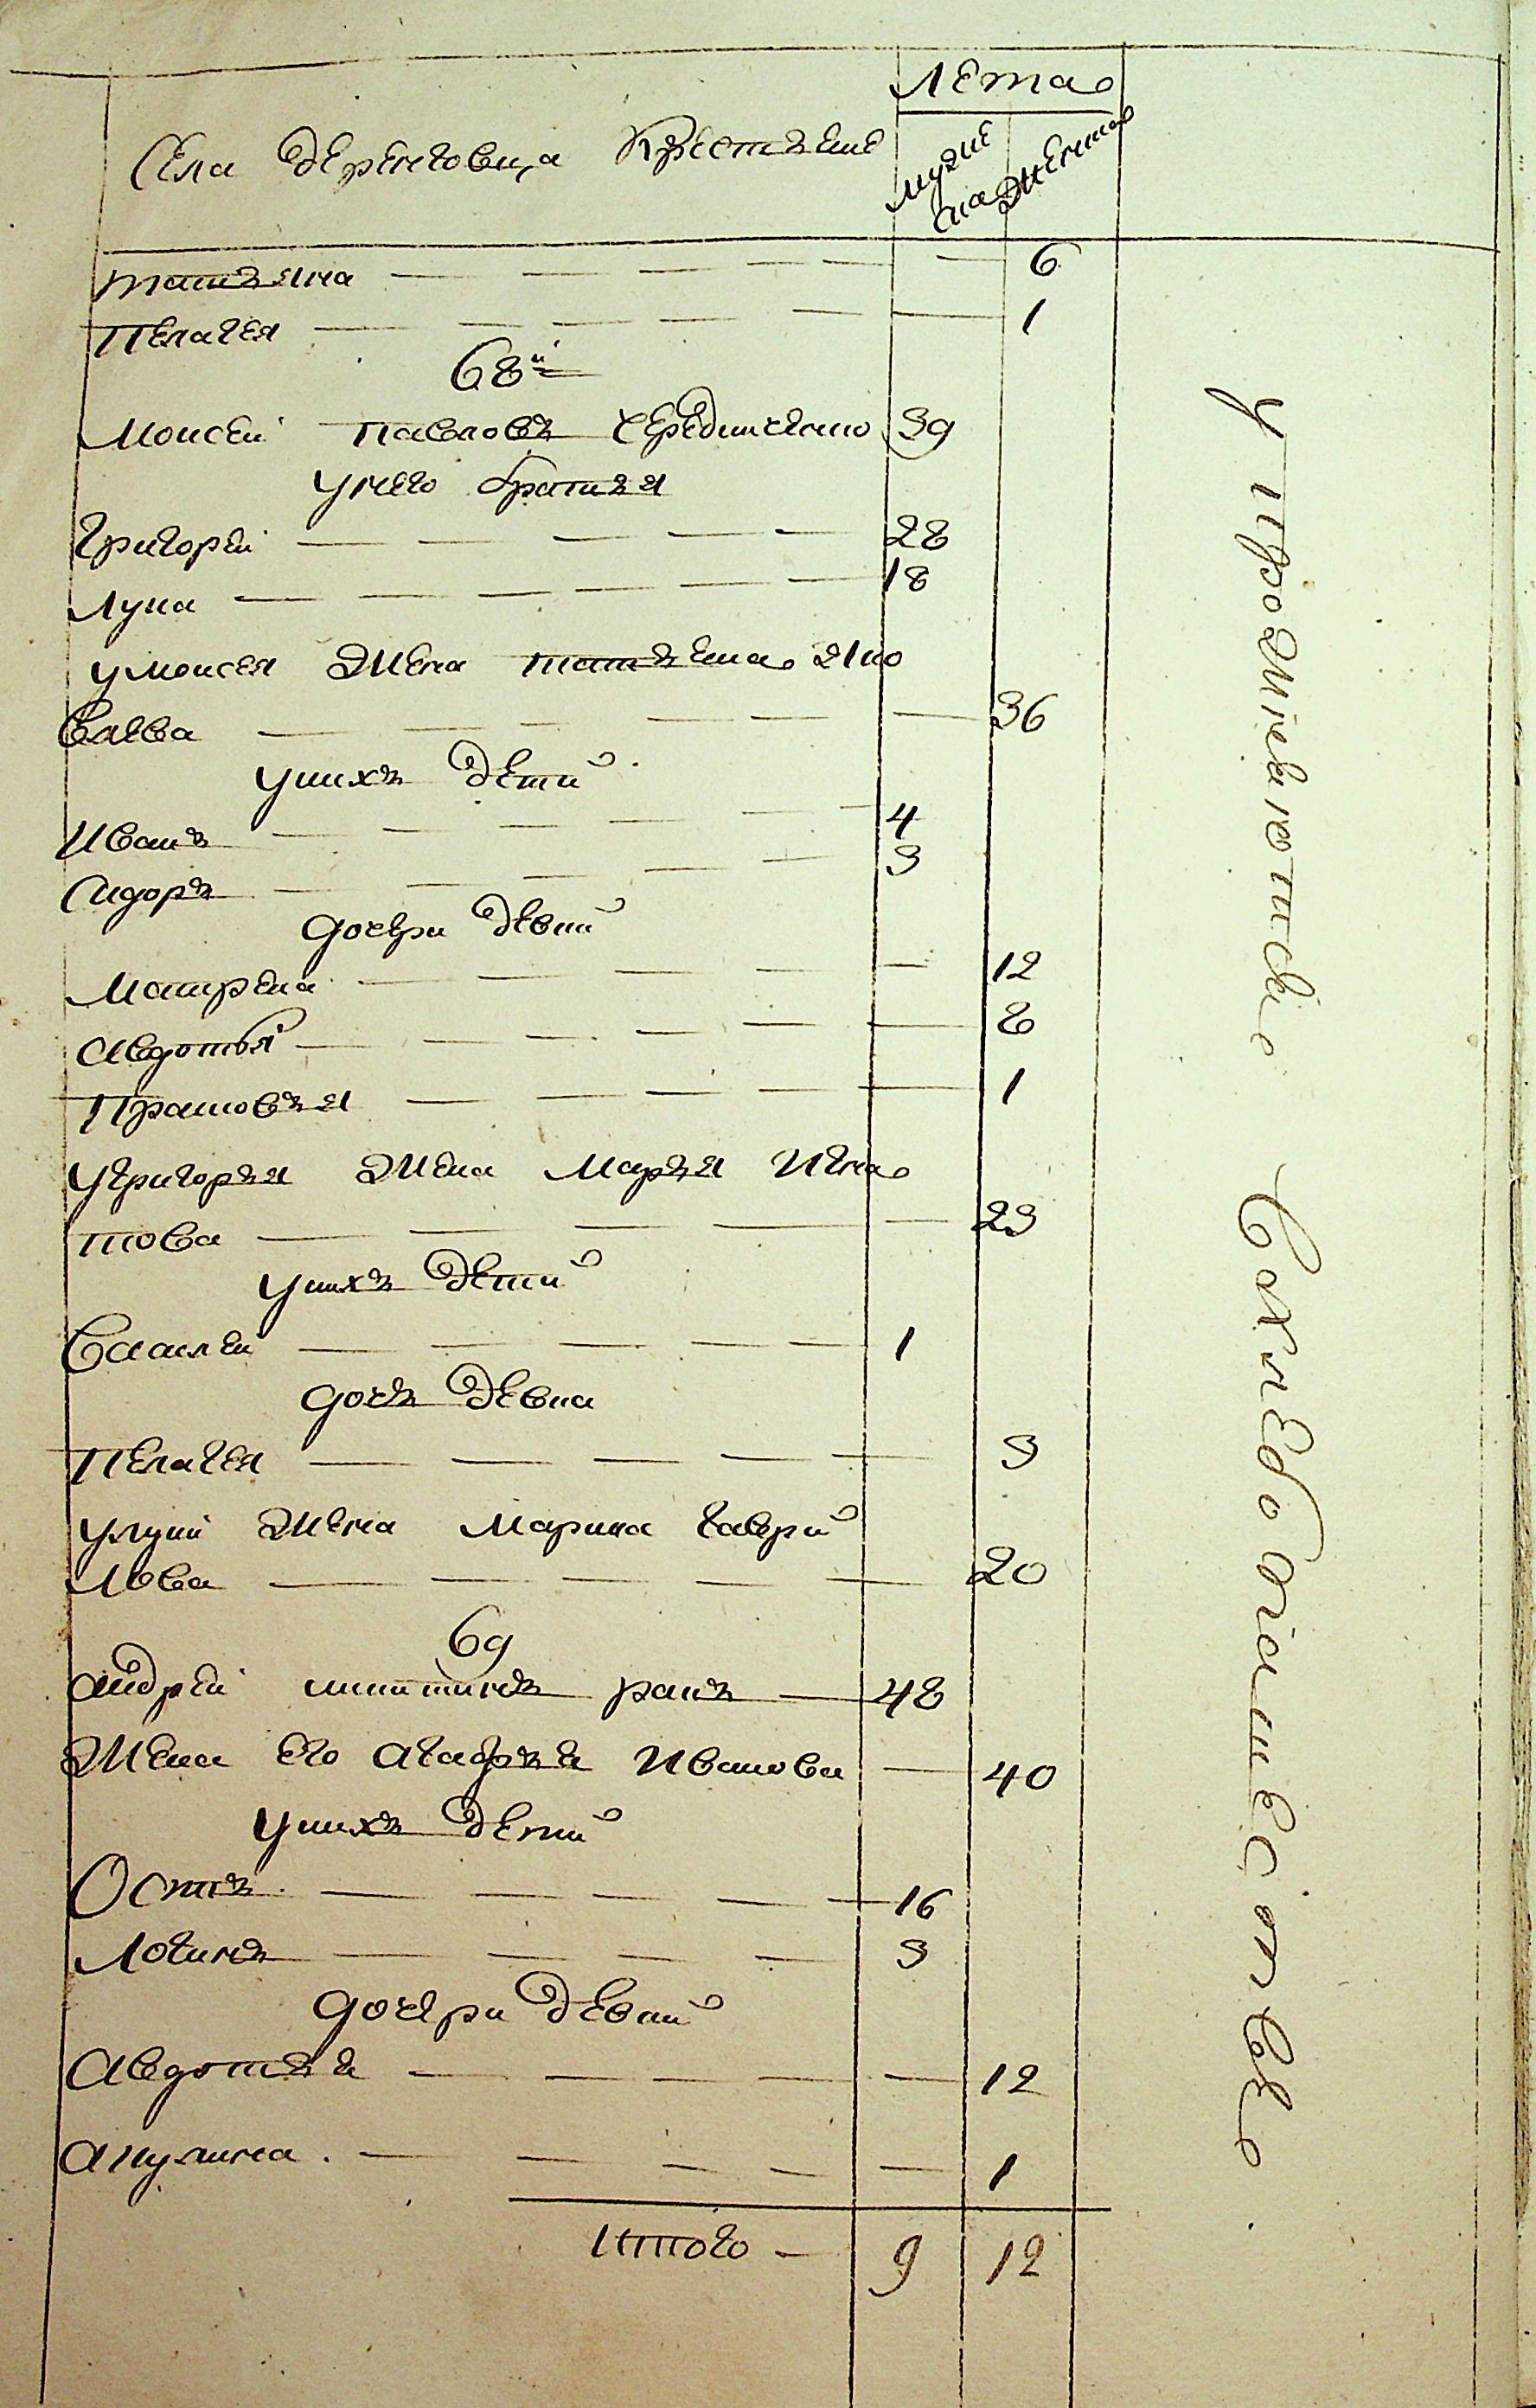 Села Дерюговца Крестьяне
Лета
мужес
ка
женска
татьяна — 6
Пелагея — 1
68й
Моисей павловъ чередниченко 39
унего братья
Григорей — 28
Лука — 18
умоисея жена татьяна яко
влева — 36
унихъ дети
Иванъ — 4
Сидоръ — 3
дочери девки
Матрена — 12
авдотья — 8
Прасковья — 1
угригорья жена Марья Игна
това — 23
унихъ дети
Василей — 1
дочь девка
Пелагея — 3
улуки жена Марина гаври
лова — 20
69
андрей никитинъ ракъ — 48
жена его агафья Иванова — 40
унихъ дети
Остапъ — 16
Логинъ — 3
дочери девки
авдотья — 12
акулина — 1
итого — 9 12
упрожневаются
вхлебопашестве